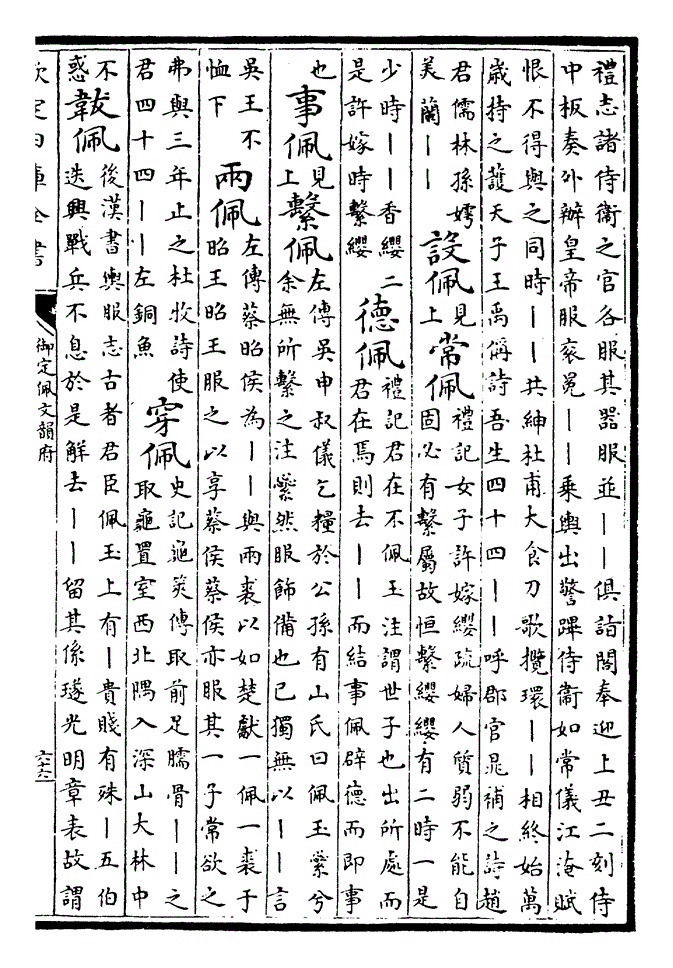 禮志諸侍衛之官各服其器服並丨丨俱詣閤奉迎上丑二刻侍
中板奏外辦皇帝服衮冕丨丨乘輿出警蹕侍衛如常儀江淹賦
恨不得與之同時丨丨共紳社甫大食刀歌攬環丨丨相終始萬
歲持之䕶天子王禹偁詩吾生四十四丨丨呼郡官晁補之詩趙
君儒林孫嫮
美蘭丨丨
設佩
見
上
常佩
禮記女子許嫁纓疏婦人質弱不能自
固必有繫屬故恒繫纓纓有二時一是
少時丨丨香纓二
是許嫁時繫纓
德佩
禮記君在不佩玉注謂世子也出所處而
君在焉則去丨丨而結事佩辟德而即事
也
事佩
見
上
繫佩
左傳吳申叔儀乞糧於公孫有山氏曰佩玉縈兮
余無所繫之注縈然服飾備也已獨無以丨丨言
吳王不
恤下
兩佩
左傳蔡昭侯為丨丨與兩裘以如楚獻一佩一裘于
昭王昭王服之以享蔡侯蔡侯亦服其一子常欲之
弗與三年止之杜牧詩使
君四十四丨丨左銅魚
穿佩
史記龜筴傳取前足臑骨丨丨之
取龜置室西北隅入深山大林中
不
惑
韍佩
後漢書輿服志古者君臣佩玉上有丨貴賤有殊丨五伯
迭興戰兵不息於是解去丨丨留其係璲光明章表故謂
欽定四庫全書
御定佩文韻府
六十六